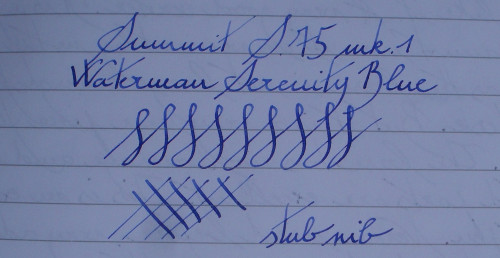 Summit S.75 mk.1
Waterman Serenity Blue
stub nib